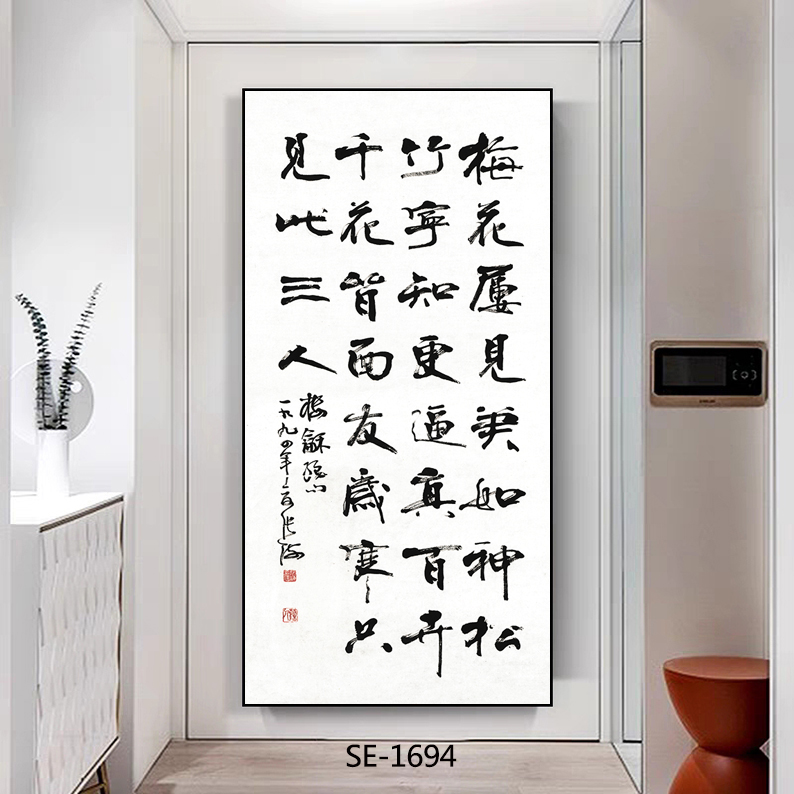 梅花屢見笔如神松
竹寧知更逼真百卉
千花皆面友歲寒只
見此三人
一九九四年
SE-1694